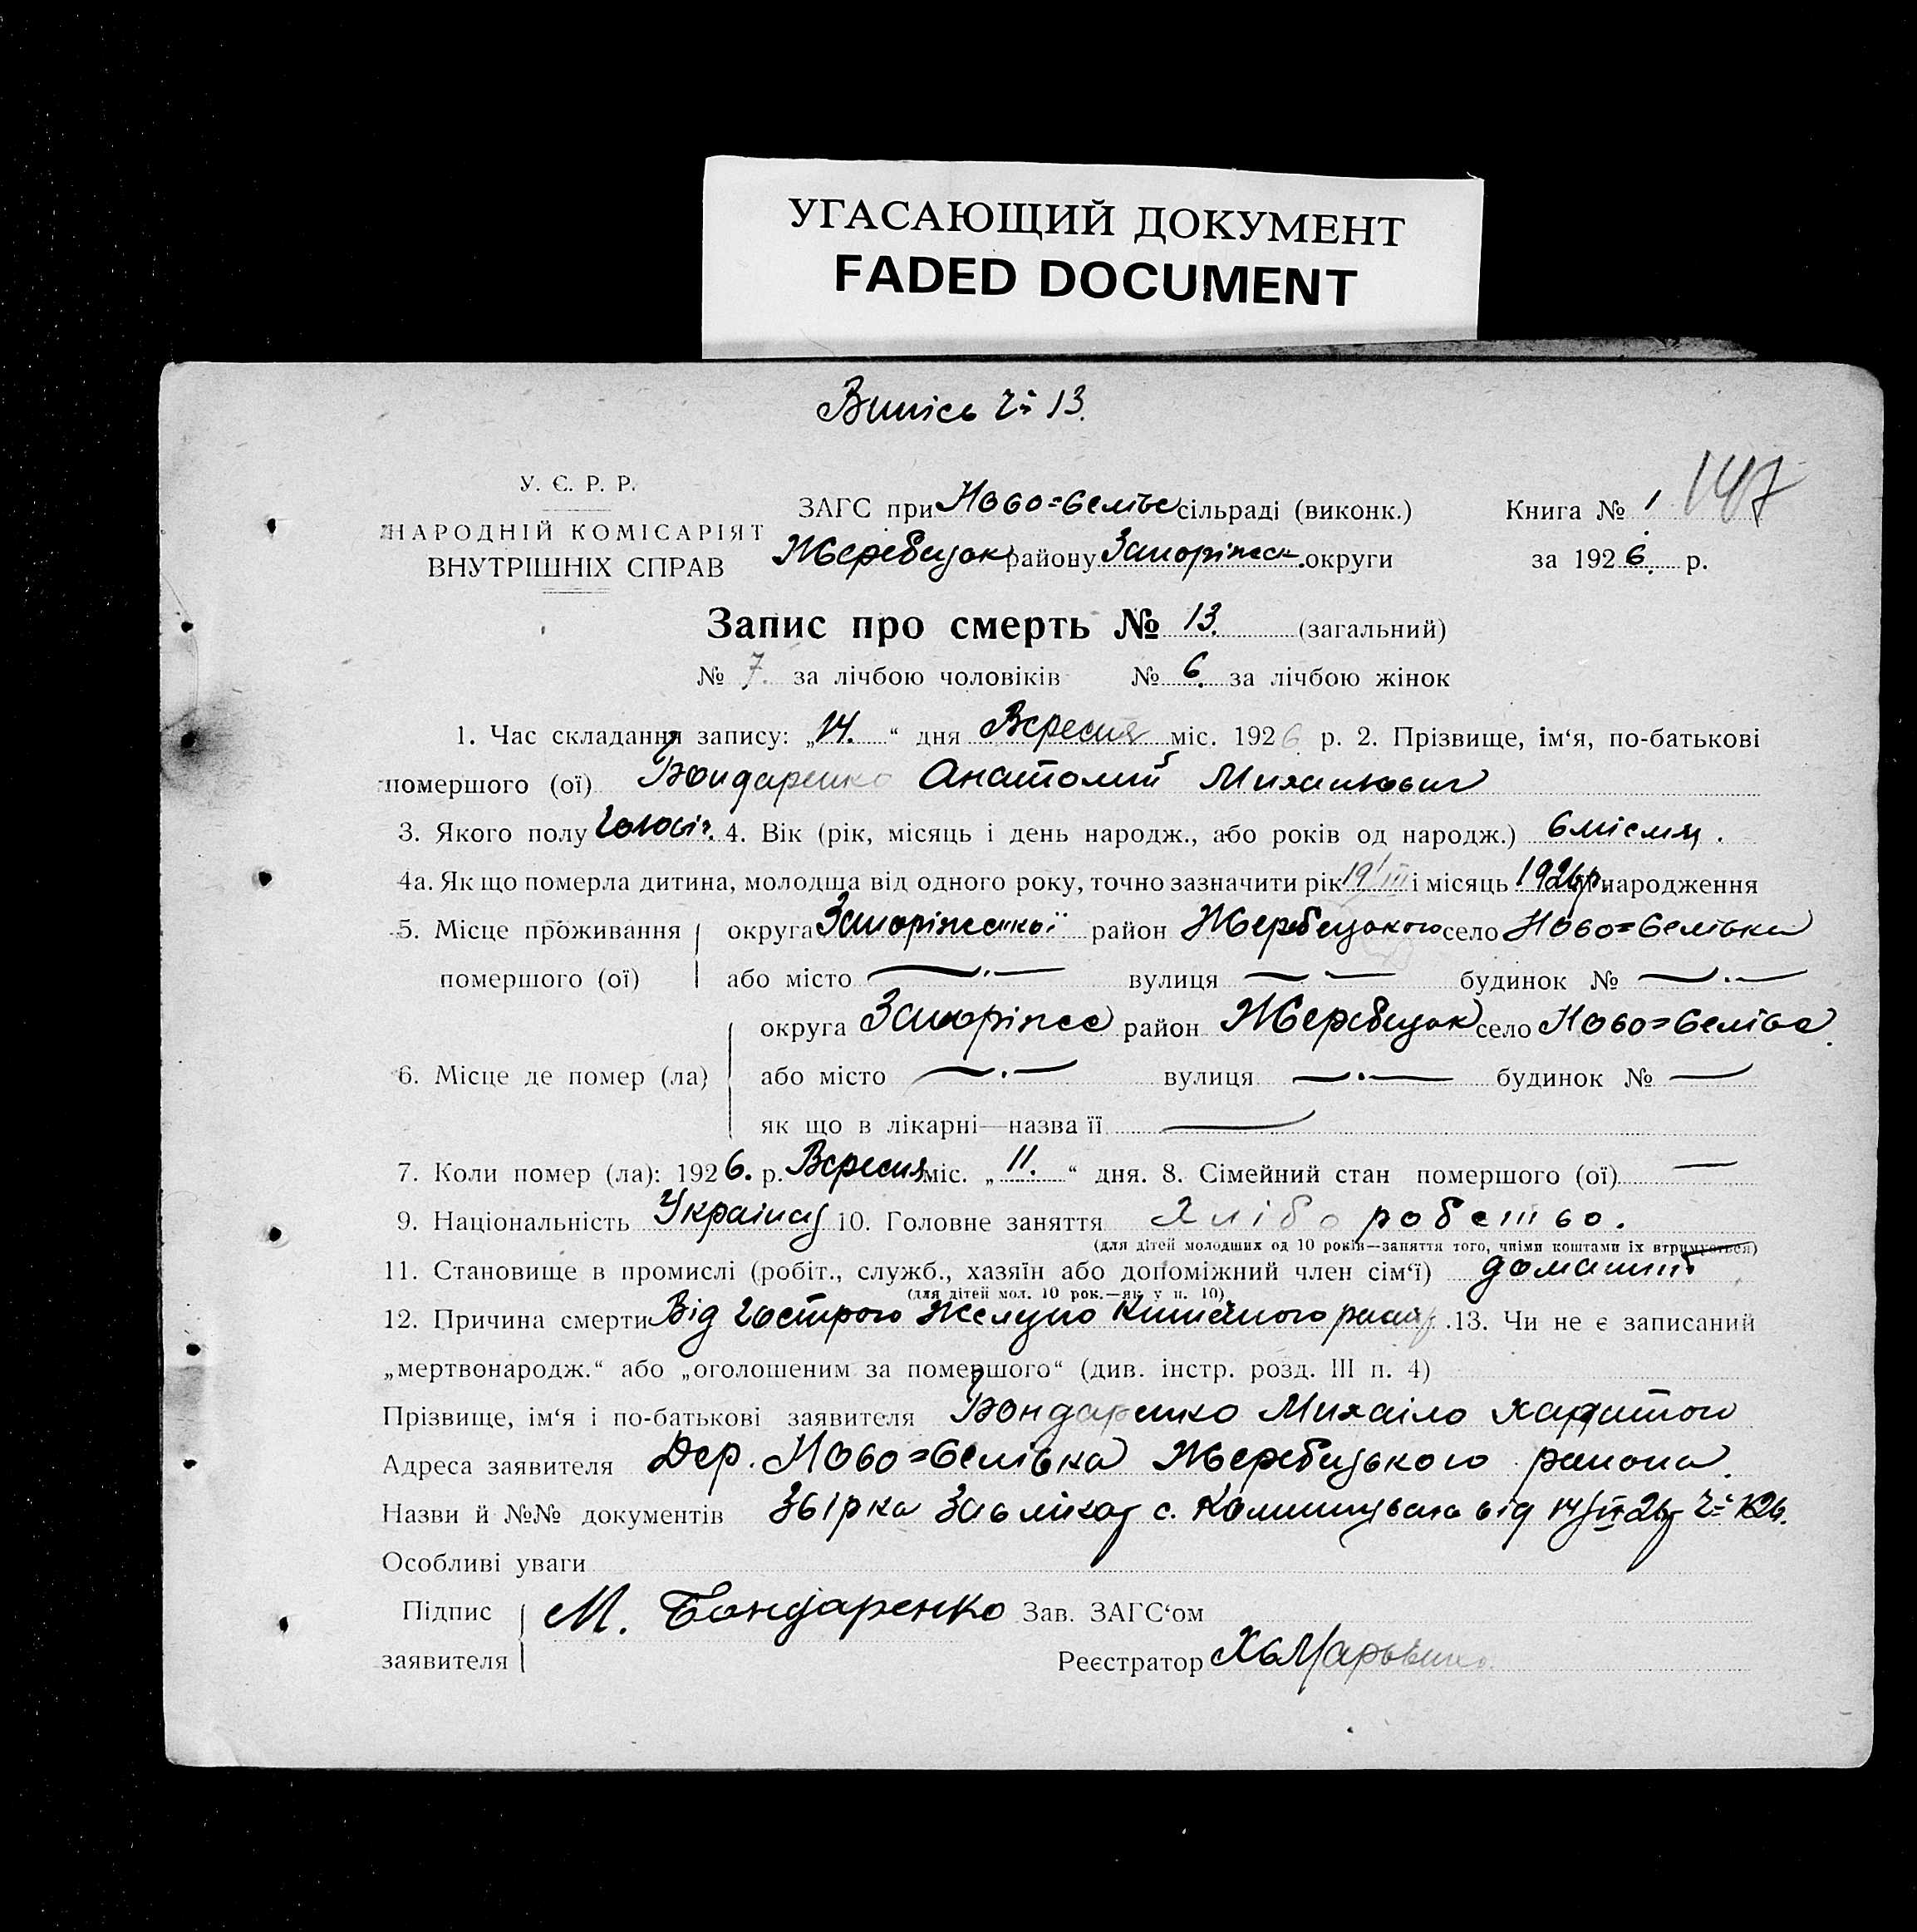 УГАСАЮЩИЙ ДОКУМЕНТ
FADED DOCUMENT
Випісь ч: 13.
147
У. С. Р. Р.
НАРОДНІЙ КОМІСАРІЯТ
ВНУТРІШНІХ СПРАВ
ЗАГС при Ново=Белівс сільраді (виконк.) Книга № 1
Жеребецьк району Запоріжськ. округи за 1926. р.
Запис про смерть № 13. (загальний)
№ 7. за лічбою чоловіків № 6. за лічбою жінок
1. Час складання запису: „14.“ дня Вересня міс. 1926 р. 2. Прізвище, ім‘я, по-батькові
помершого (ої) Бондаренко Анатолий Михаилович
3. Якого полу чоловіч. 4. Вік (рік, місяць і день народж., або років од народж.) 6 місяц.
4а. Як що померла дитина, молодша від одного року, точно зазначити рік 19/III і місяць 1926р. народження
5. Місце проживання округа Запоріжської район Жеребецького село Ново=Белівка
помершого (ої) або місто — вулиця — будинок № —
округа Запоріжс район Жеребецьк село Ново=Белівка.
6. Місце де помер (ла) або місто — вулиця — будинок № —
як що в лікарні—назва її —
7. Коли помер (ла): 1926. р. Вересня міс. „11.“ дня. 8. Сімейний стан помершого (ої) —
9. Національність Україн 10. Головне заняття Хлібо робство.
(для дітей молодших од 10 років—заняття того, чиїми коштами їх втримується)
11. Становище в промислі (робіт., служб., хазяїн або допоміжний член сім‘ї)
(для дітей мол. 10 рок.—як у п. 10)
12. Причина смерти Від гострого Желудко Кишечного 13. Чи не є записаний
„мертвонародж.“ або „оголошеним за помершого“ (див. інстр. розд. III п. 4)
Прізвище, ім‘я і по-батькові заявителя Бондаренко Михаіло
Адреса заявителя Дер. Ново=Белівка Жеребецького района.
Назви й №№ документів с. від
Особливі уваги
Підпис М. Бондаренко Зав. ЗАГС‘ом
заявителя Реєстратор